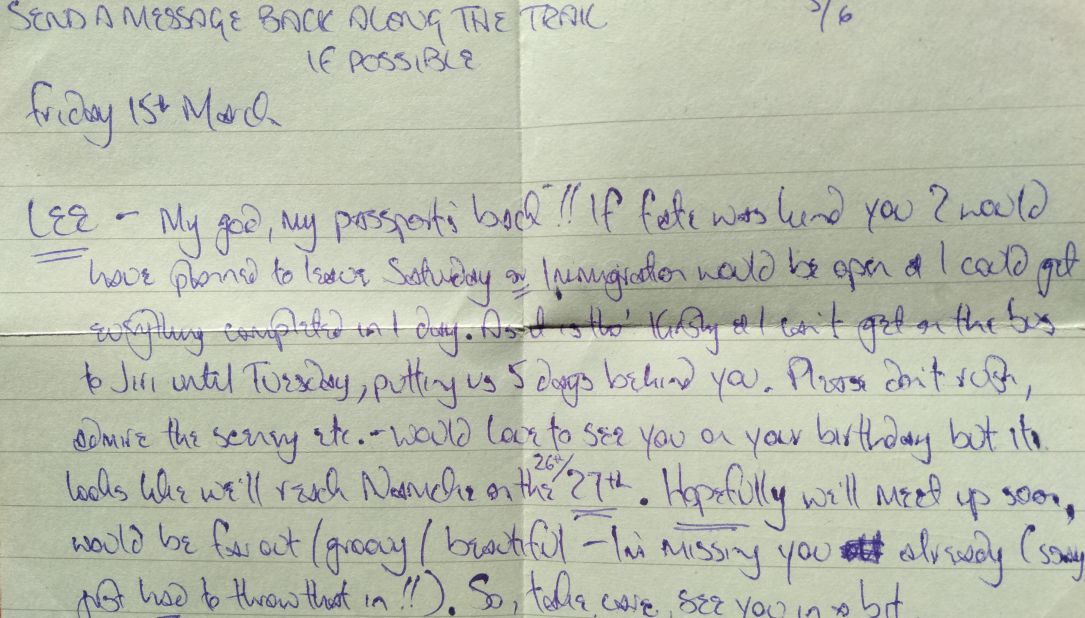 SEND A MESSAGE BACK ALONG THE TRAIL 5/6
IF POSSIBLE
Friday 15th March
LEE - My god, my passport's back!! If fate was kind you 2 would
have planned to leave Saturday as Immigration would be open & I could get
everything completed in 1 day. As it is tho' Kirsty & I can't get on the bus
to Jiri until Tuesday, putting us 5 days behind you. Please don't rush,
admire the scenery etc. - would love to see you on your birthday but it
looks like we'll reach Namche on the 26th/27th. Hopefully we'll meet up soon,
would be far out/groovy/beautiful - I'm missing you already (sorry
just had to throw that in!!). So, take care, see you in a bit